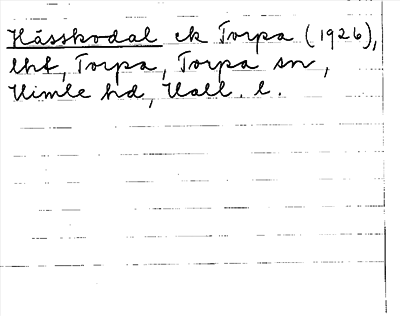 Hässkodal ek Torpa (1926),
lht, Torpa, Torpa sn,
Himle hd, Hall. l.